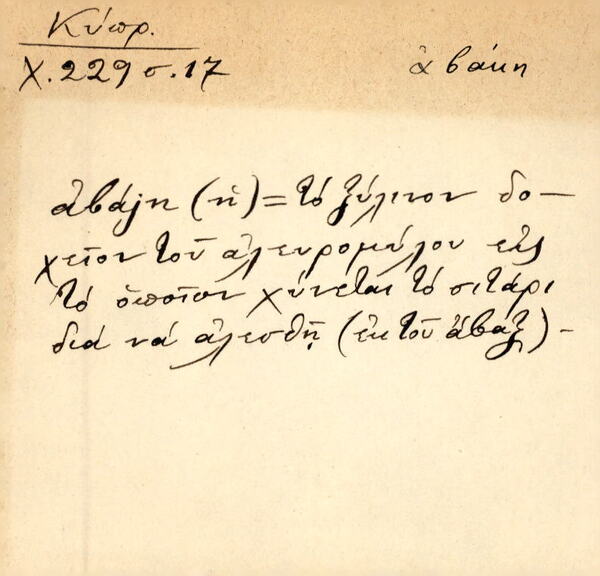 Κύπρ.
Χ. 229 σ. 17
ἀβάκη
ἀβάκη (ἡ) = τὸ ξύλινον δο-
χεῖον τοῦ ἀλευρομύλου εἰς
τὸ ὁποῖον χύνεται τὸ σιτάρι
διὰ νὰ ἀλεσθῇ (ἐκ τοῦ ἄβαξ) -